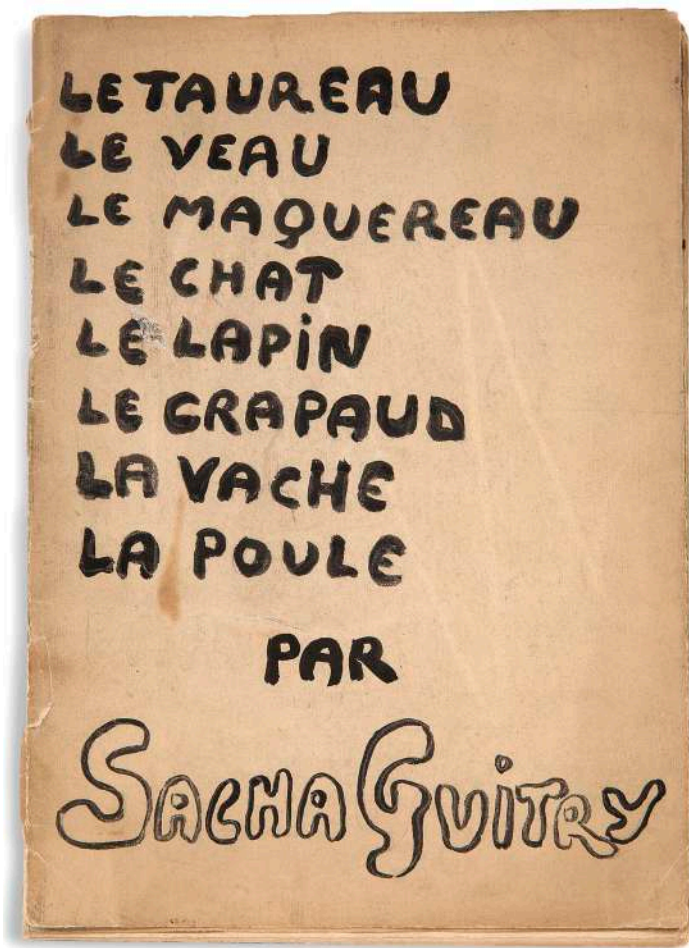 LE TAUREAU
LE VEAU
LE MAQUEREAU
LE CHAT
LE LAPiN
LE CRAPAUD
LA VACHE
LA POULE
PAR
SACHA GUiTRY